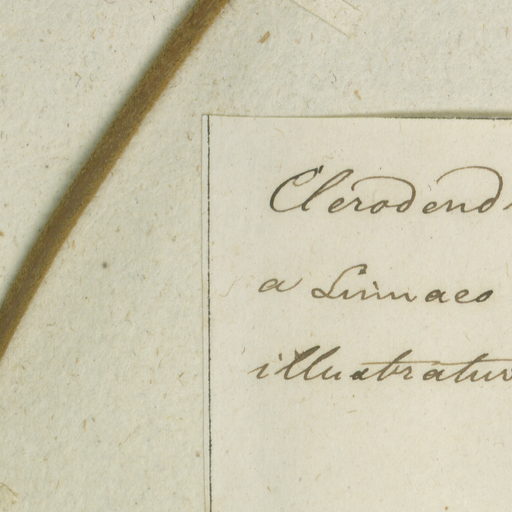 Clerodend
a Linnaeo
illustratur